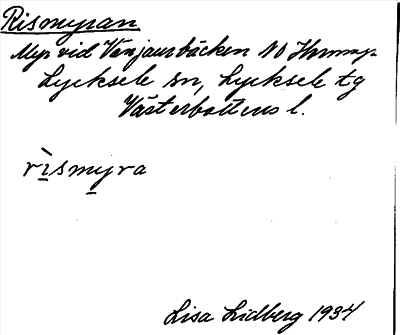 Rismyran
Myr vid Vänjaurbäcken NO
Lycksele sn, Lycksele tg
Västerbottens l.
rismyra
Lisa Lidberg 1934